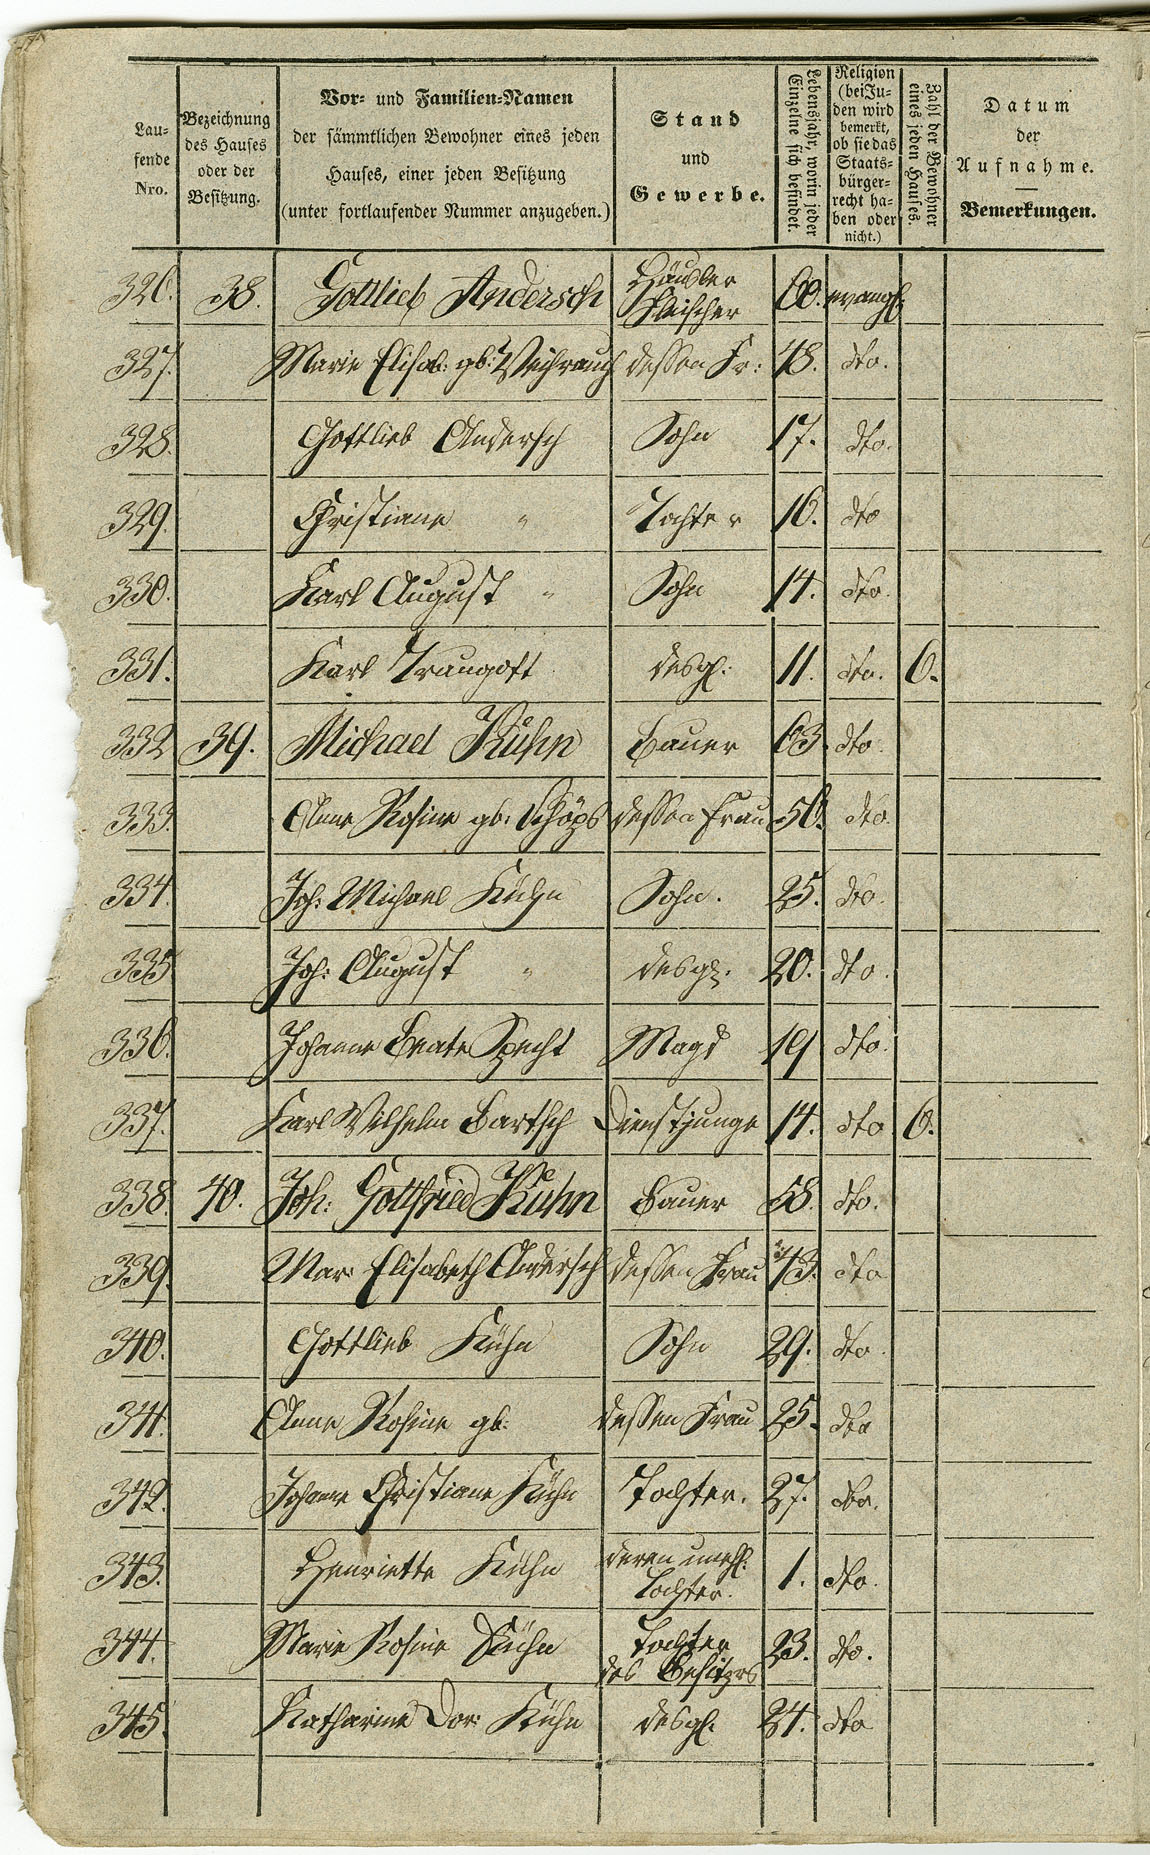 Laufende Nro.
Bezeichnung des Hauses oder der Besitzung.
Vor- und Familien-Namen
der sämmtlichen Bewohner eines jeden
Hauses, einer jeden Besitzung
(unter fortlaufender Nummer anzugeben.)
Stand
und
Gewerbe.
Lebensjahr, worin jeder Einzelne sich befindet.
Religion (bei Juden wird bemerkt, ob sie das Staatsbürgerrecht haben oder nicht.)
Zahl der Bewohner eines jeden Hauses.
Datum
der
Aufnahme.
Bemerkungen.
326. 38. Gottlieb Andersch Häusler Fleischer 60. evangl:
327. Marie Elisab: gb: Weihrauch dessen Fr: 48. dto.
328. Gottlieb Andersch Sohn 17. dto.
329. Christiane " Tochter 16. dto
330. Karl August " Sohn 14. dto.
331. Karl Traugott desgl: 11. dto. 6.
332 39. Michael Kühn Bauer 63. dto.
333. Anne Rosine gb: Schöps dessen Frau 56. dto.
334. Joh: Michael Kühn Sohn. 25. dto.
335 Joh: August " desgl. 20. dto.
336. Johanne Beate Specht Magd 19 dto.
337. Karl Wilhelm Bartsch Dienstjunge 14. dto 6.
338. 40. Joh: Gottfried Kühn Bauer 58. dto.
339. Mar: Elisabeth Andersch dessen Frau 43. dto
340. Gottlieb Kühn Sohn 29. dto.
341. Anne Rosine gb: dessen Frau 25. dto
342. Johanne Christiane Kühn Tochter. 27. dto.
343. Henriette Kühn deren unehl: Tochter. 1. dto.
344. Marie Rosine Kühn Tochter des Besitzers 23. dto.
345. Katharine Dor: Kühn desgl. 24. dto